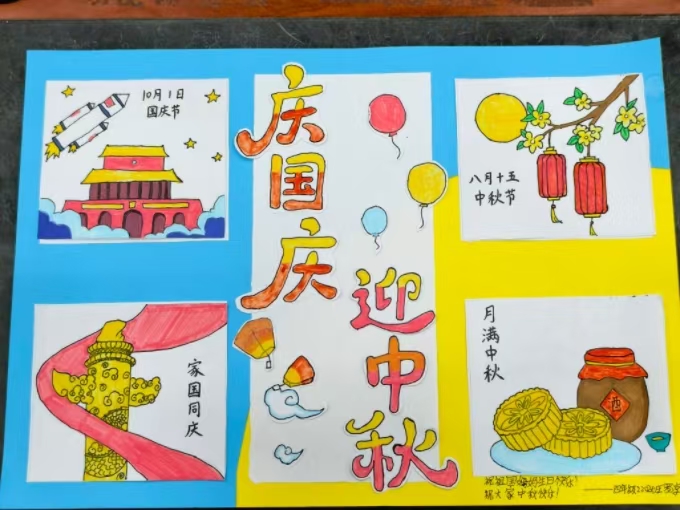 10月1日
国庆节
庆国庆
迎中秋
八月十五
中秋节
家国同庆
月满中秋
酒
祝祖国妈妈生日快乐!
祝大家中秋快乐!